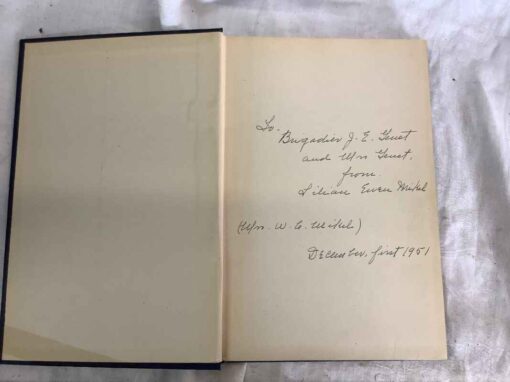 To.
Brigadier J. E. Gust
and Mrs Gust,
from
Lilian Ewen Mikel
(Mrs. W. C. Mikel)
December, first 1951